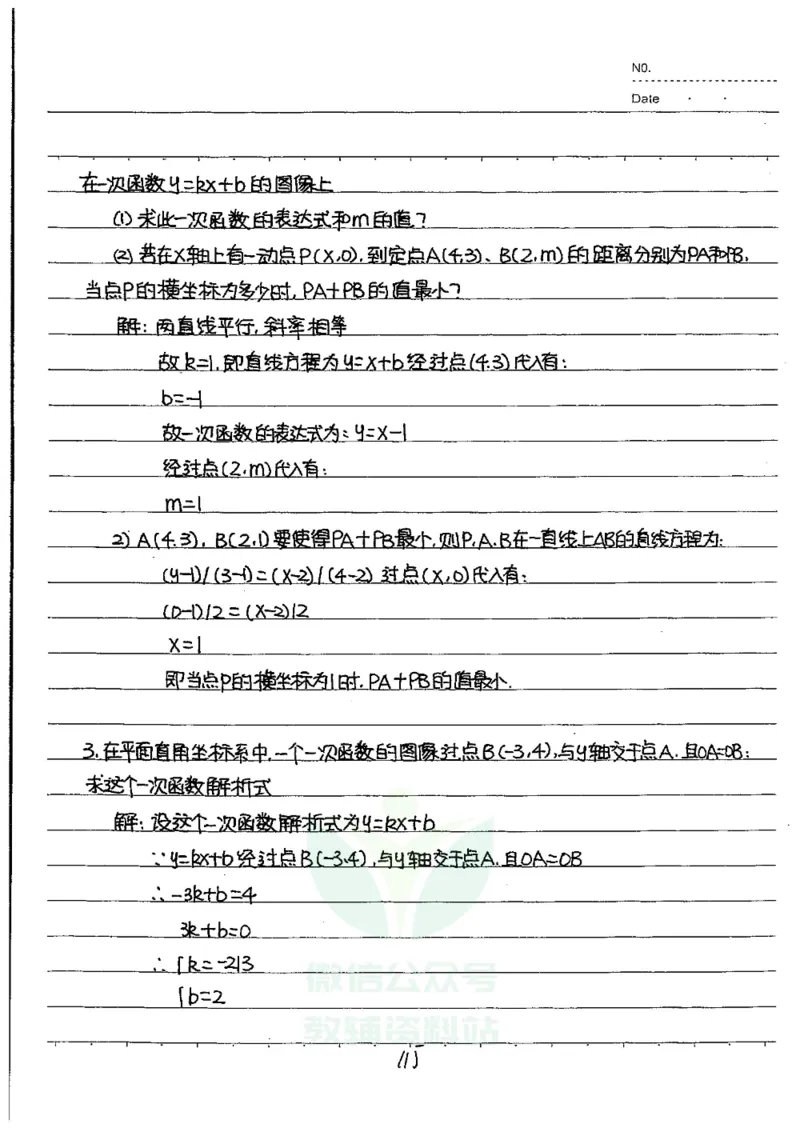 NO.
Date
在一次函数y=kx+b的图像上
(1) 求此一次函数的表达式和m的值?
(2) 若在X轴上有一动点P(X,0),到定点A(4,3)、B(2,m)的距离分别为PA和PB,
当点P的横坐标为多少时,PA+PB的值最小?
解:两直线平行,斜率相等
故k=1,即直线方程为y=x+b经过点(4,3)代入有:
b=-1
故一次函数的表达式为:y=x-1
经过点(2,m)代入有:
m=1
2) A(4,3),B(2,1)要使得PA+PB最小,则P,A,B在一直线上AB的直线方程为:
(y-1)/(3-1)=(x-2)/(4-2) 过点(X,0)代入有:
(0-1)/2=(X-2)/2
X=1
即当点P的横坐标为1时,PA+PB的值最小.
3.在平面直角坐标系中,一个一次函数的图像过点B(-3,4),与y轴交于点A,且OA=OB:
求这个一次函数解析式
解:设这个一次函数解析式为y=kx+b
∵y=kx+b经过点B(-3,4),与y轴交于点A,且OA=OB
∴-3k+b=4
3k+b=0
∴{k=-2/3
{b=2
微信公众号
教辅资料站
115